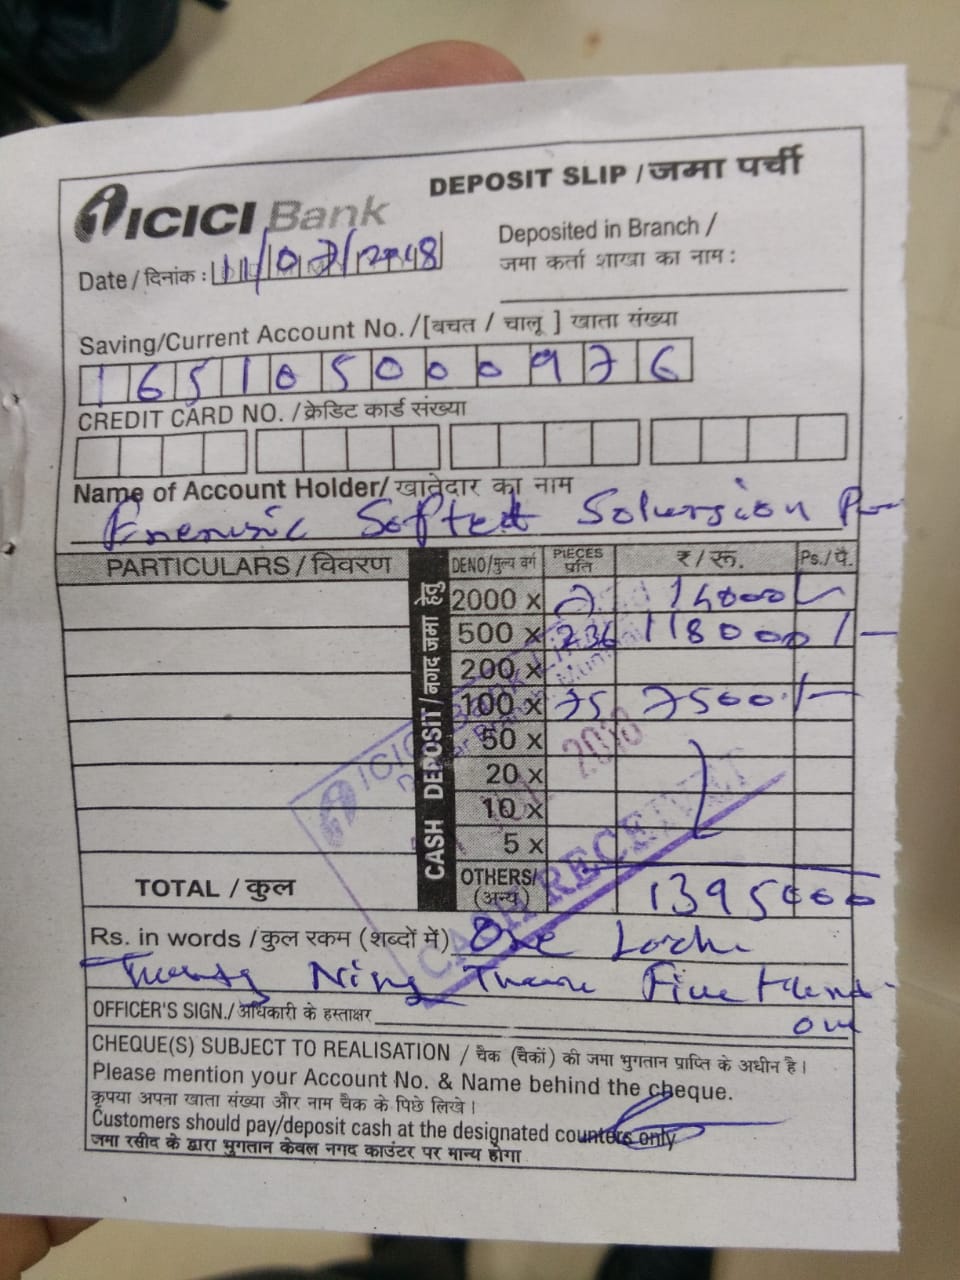 ICICI Bank
DEPOSIT SLIP / जमा पर्ची
Date / दिनांक : 11/07/2018
Deposited in Branch /
जमा कर्ता शाखा का नाम :
Saving/Current Account No. /[बचत / चालू ] खाता संख्या
165105000976
CREDIT CARD NO. / क्रेडिट कार्ड संख्या
Name of Account Holder/ खातेदार का नाम
PARTICULARS / विवरण
CASH DEPOSIT / नगद जमा हेतु
DENO/मुल्य वर्ग PIECES प्रति ₹ / रू. Ps./पै.
2000 x 7 14000/-
500 x 236 118000/-
200 x
100 x 75 7500/-
50 x
20 x
10 x
5 x
OTHERS/ (अन्य)
TOTAL / कुल 139500
ICICI
2018
CASH RECEIVED
Rs. in words / कुल रकम (शब्दों में) One
Twenty Five
OFFICER'S SIGN./ अधिकारी के हस्ताक्षर
CHEQUE(S) SUBJECT TO REALISATION / चैक (चैकों) की जमा भुगतान प्राप्ति के अधीन है।
Please mention your Account No. & Name behind the cheque.
कृपया अपना खाता संख्या और नाम चैक के पिछे लिखे।
Customers should pay/deposit cash at the designated counters only
जमा रसीद के द्वारा भुगतान केवल नगद काउंटर पर मान्य होगा